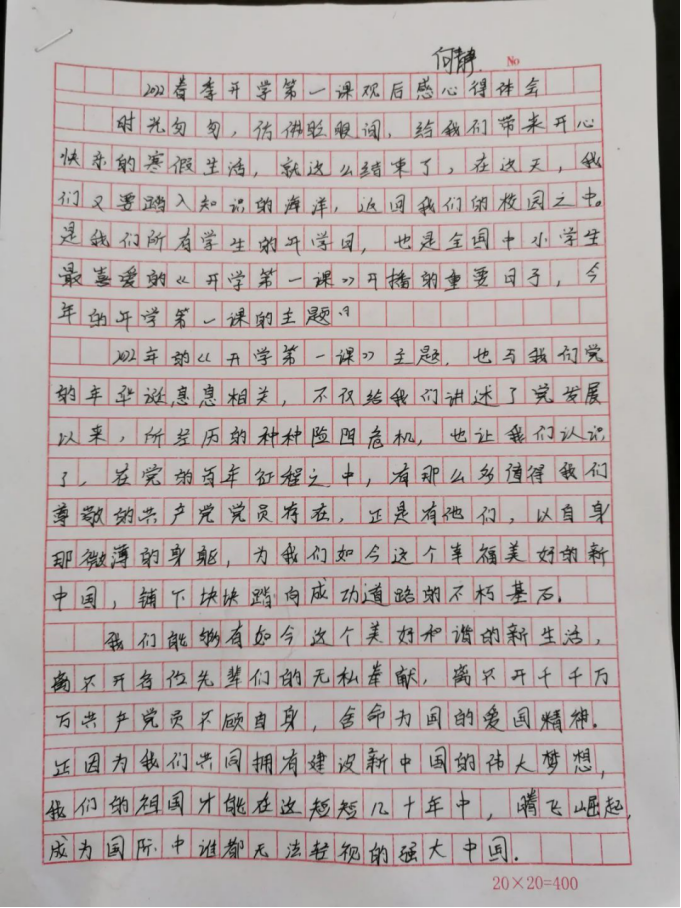 何静
No
2022春季开学第一课观后感心得体会
时光匆匆，仿佛眨眼间，给我们带来开心
快乐的寒假生活，就这么结束了，在这天，我
们又要踏入知识的海洋，返回我们的校园之中。
是我们所有学生的开学日，也是全国中小学生
最喜爱的《开学第一课》开播的重要日子，今
年的开学第一课的主题
2022年的《开学第一课》主题，也与我们党
的年华诞息息相关，不仅给我们讲述了党发展
以来，所经历的种种险阻危机，也让我们认识
了，在党的百年征程之中，有那么多值得我们
尊敬的共产党党员存在，正是有他们，以自身
那微薄的身躯，为我们如今这个幸福美好的新
中国，铺下块块踏向成功道路的不朽基石。
我们能够有如今这个美好和谐的新生活，
离不开各位先辈们的无私奉献，离不开千千万
万共产党员不顾自身，舍命为国的爱国精神。
正因为我们共同拥有建设新中国的伟大梦想，
我们的祖国才能在这短短几十年中，腾飞崛起，
成为国际中谁都无法轻视的强大中国。
20×20=400